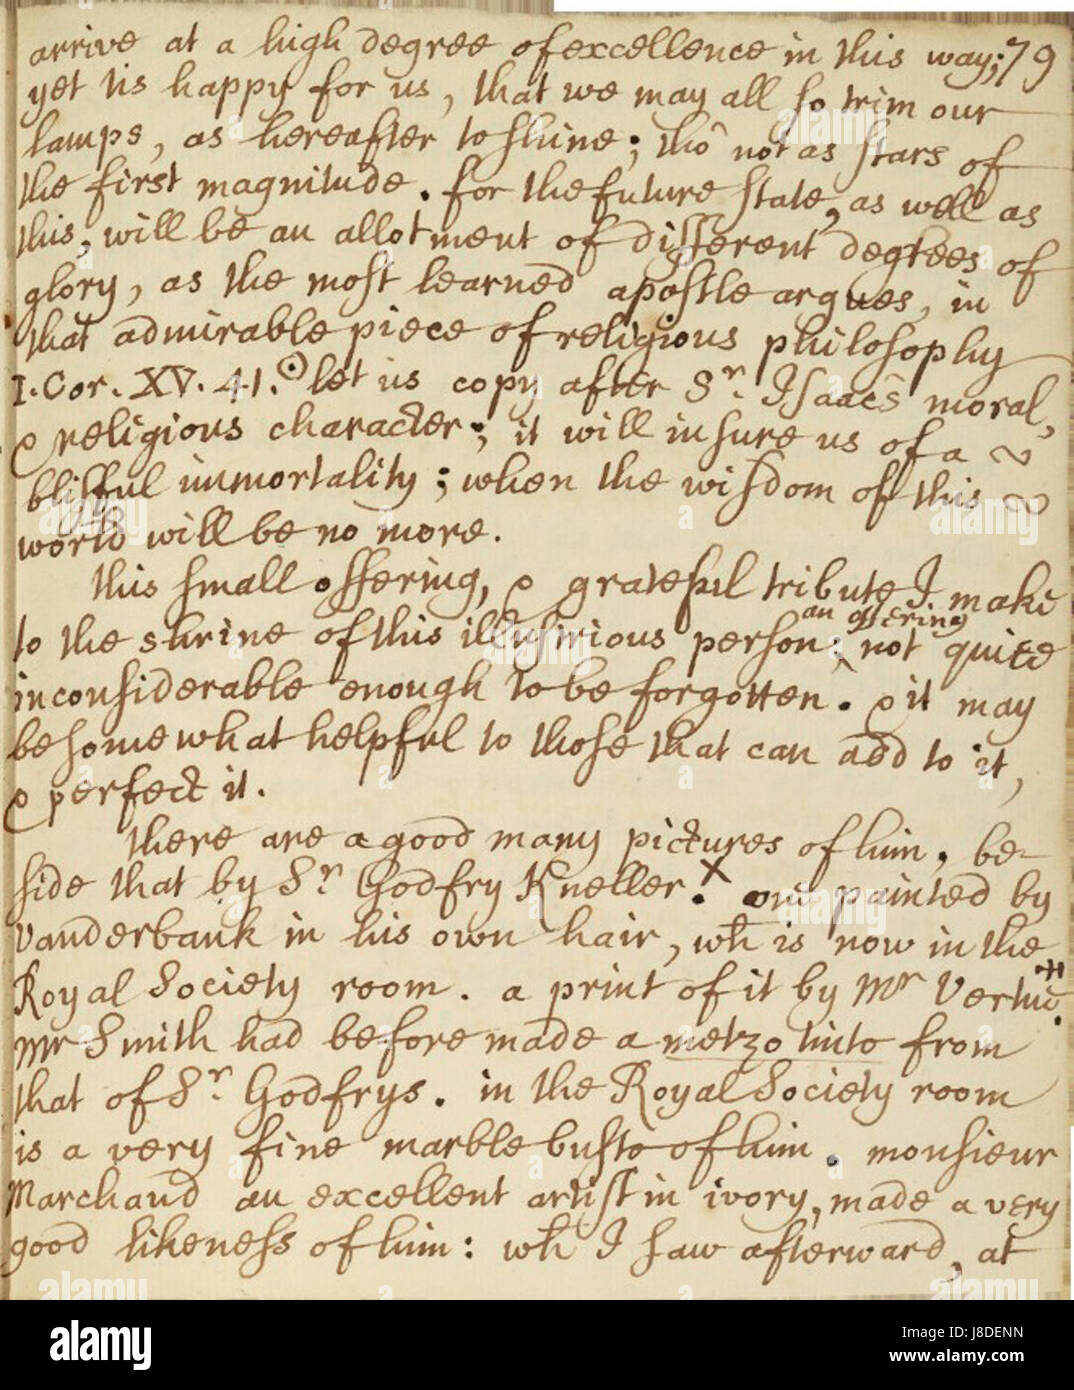 arrive at a high degree of excellence in this way; 79
yet tis happy for us, that we may all so trim our
lamps, as hereafter to shine; tho' not as stars of
the first magnitude. for the future state, as well as
this, will be an allotment of different degrees of
glory, as the most learned apostle argues, in
that admirable piece of religious philosophy
1. Cor. XV. 41.☉ let us copy after Sr. Isaacs moral,
& religious character; it will insure us of a ~
blissful immortality; when the wisdom of this ~
world will be no more.
this small offering, & grateful tribute I make
to the shrine of this illustrious person: ^an offering not quite
inconsiderable enough to be forgotten. & it may
be somewhat helpful to those that can add to it,
& perfect it.
there are a good many pictures of him, be-
side that by Sr. Godfry Kneller.X one painted by
Vanderbank in his own hair, wh is now in the
Royal Society room. a print of it by Mr Vertue.
Mr Smith had before made a metzo tinto from
that of Sr. Godfrys. in the Royal Society room
is a very fine marble busto of him. monsieur
Marchand an excellent artist in ivory, made a very
good likeness of him: wh I saw afterward, at
alamy
Image ID: J8DENN
www.alamy.com